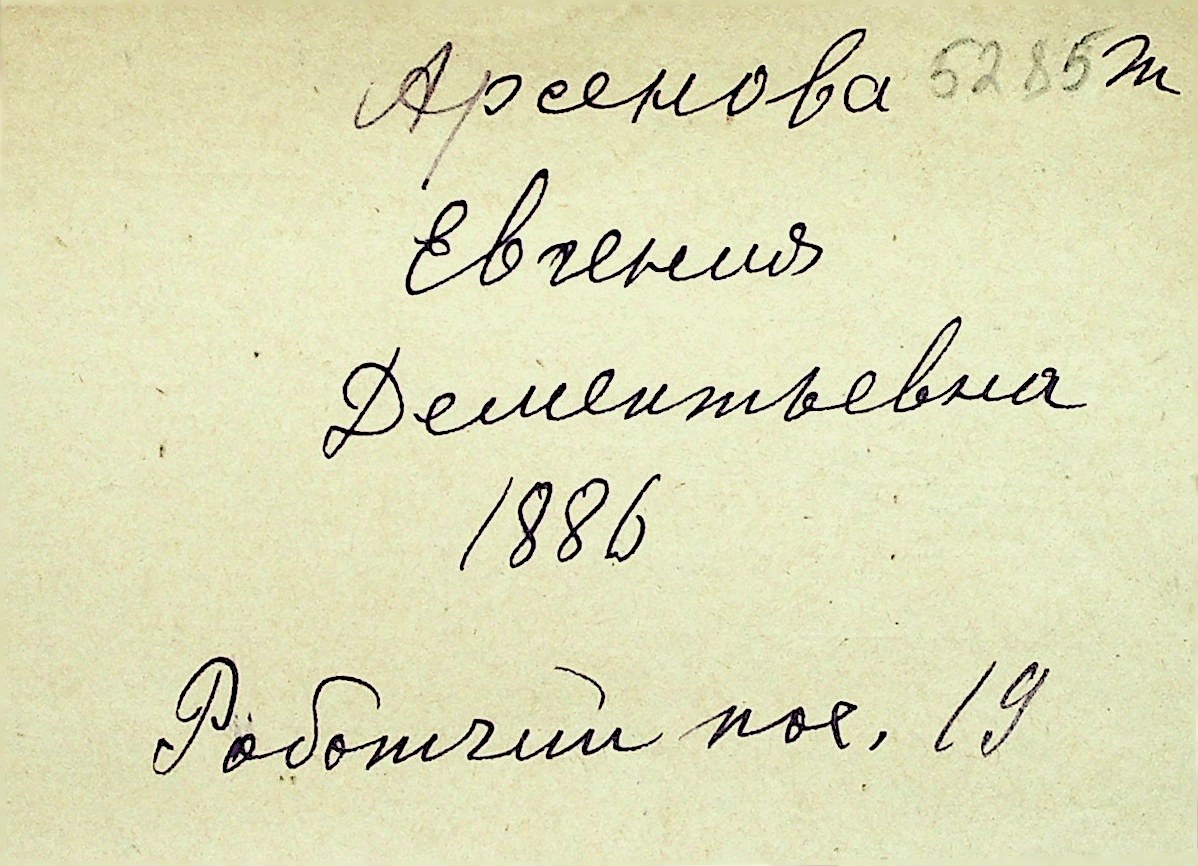 Арсенова 5285т
Евгения
Дементьевна
1886
Роботчий пос. 19